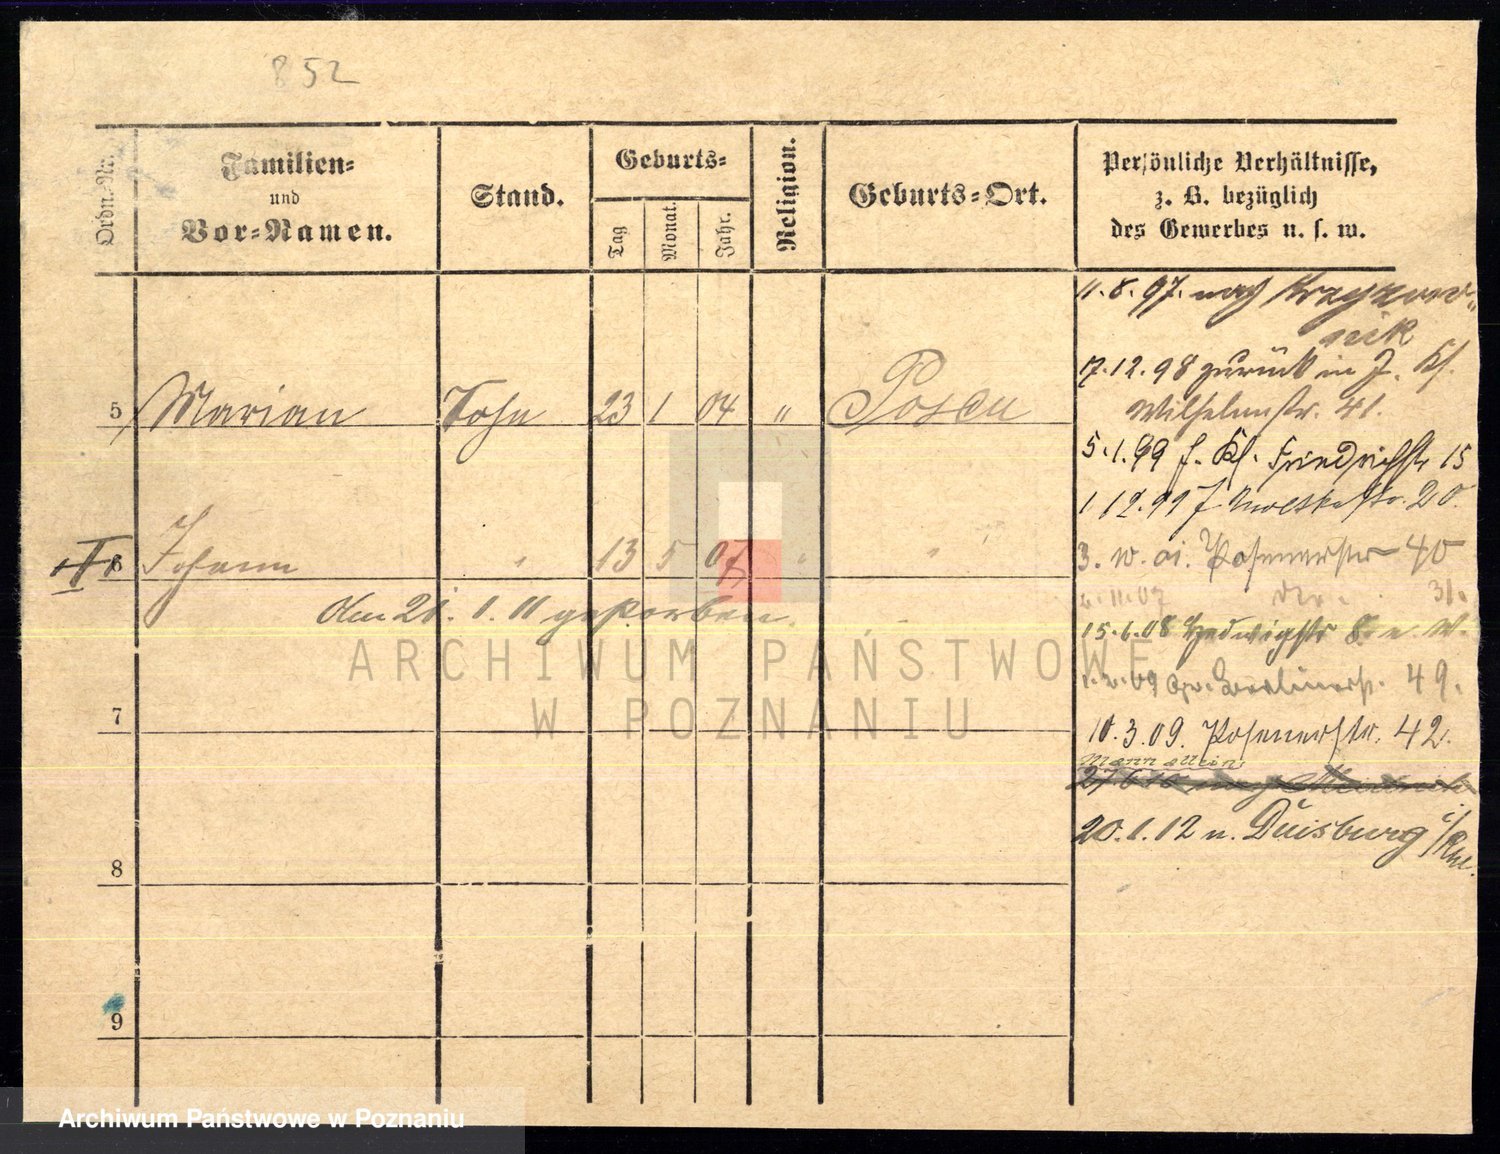 852
Ordn.-Nr.
Familien-
und
Vor-Namen.
Stand.
Geburts-
Tag
Monat.
Jahr.
Religion.
Geburts-Ort.
Persönliche Verhältnisse,
z. B. bezüglich
des Gewerbes u. s. w.
11.8.97. nach Krzyzow-
nik
17.12.98 zurück in J. Kl.
Wilhelmstr. 41.
5 Marian Sohn 23 1 04 " Posen
5.1.99 J. Kl. Friedrichstr 15
1.12.99 J. Moltkestr. 20.
6 Johann " 13 5 07 " "
3. Posenerstr 40
11.07 31.
am 21. 1. 11 gestorben.
15.6.08 Hedwigstr 8.
ARCHIWUM PAŃSTWOWE
W POZNANIU
09 Berlinerstr. 49.
7
10.3.09. Posenerstr. 42.
Mann allein
20.1.12 n. Duisburg
8
9
Archiwum Państwowe w Poznaniu